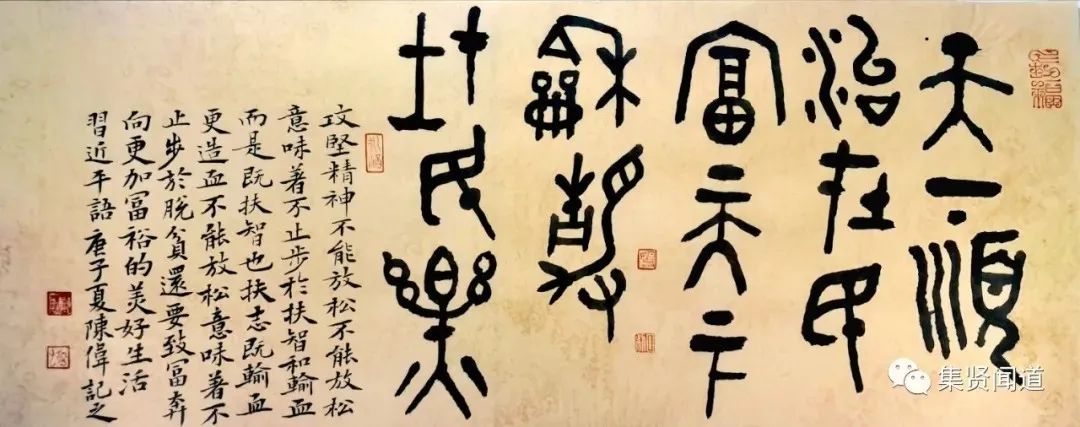 天下順
治在民
富天下
龢靜
在民樂
攻堅精神不能放松不能放松
意味著不止步於扶智和輸血
而是既扶智也扶志既輸血
更造血不能放松意味著不
止步於脫貧還要致富奔
向更加富裕的美好生活
習近平語庚子夏陳偉記之
集贤闻道